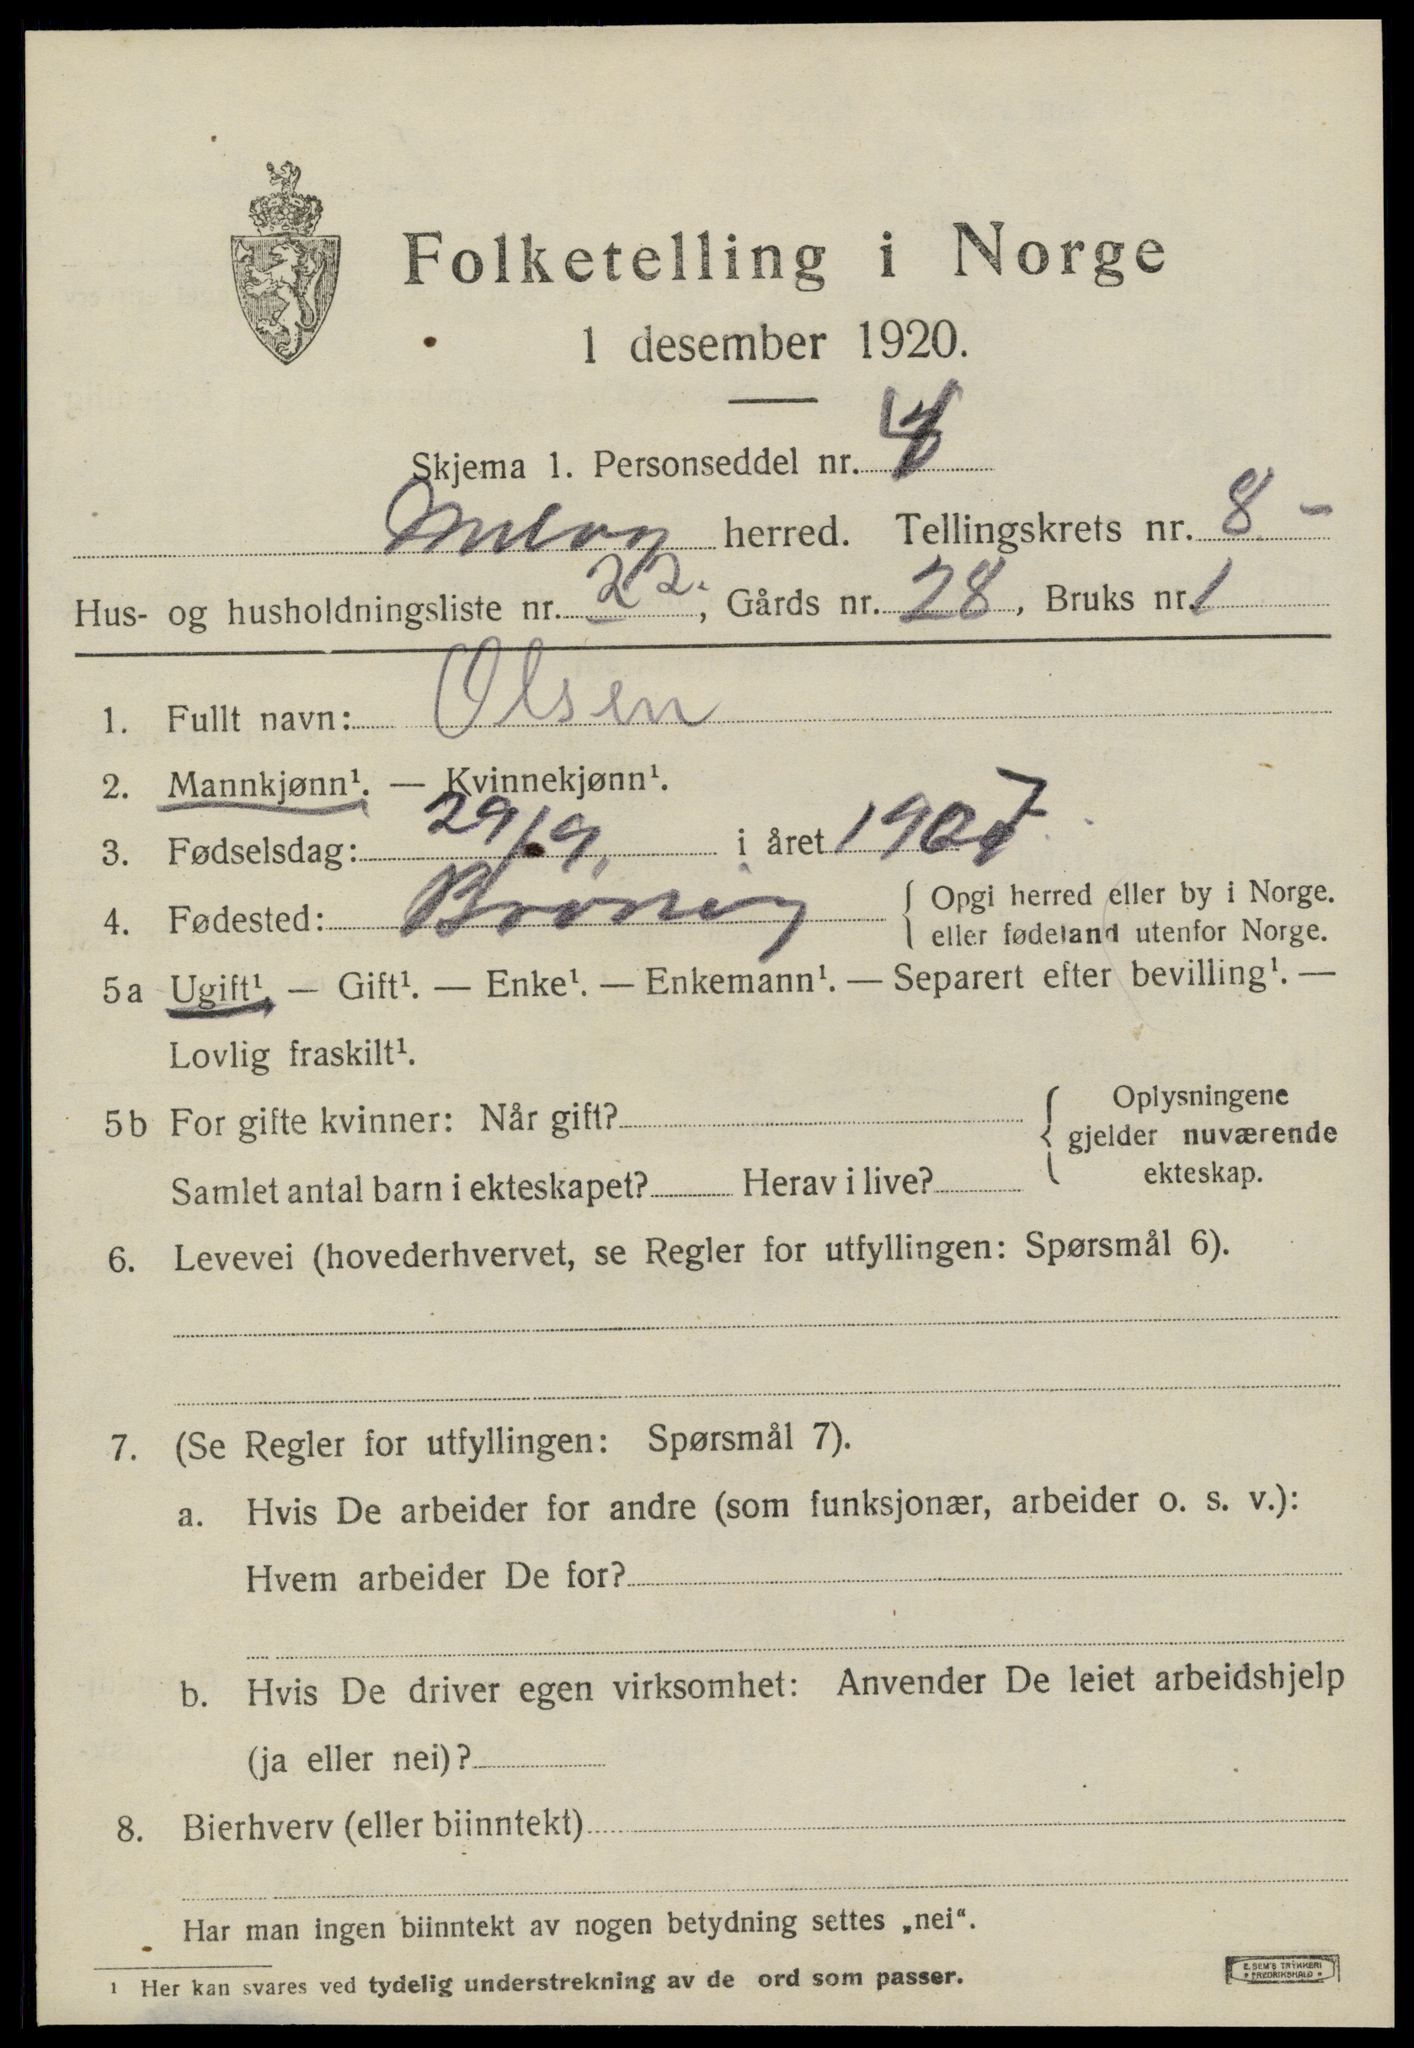 Folketelling i Norge
1 desember 1920.
Skjema 1. Personseddel nr. 4
herred. Tellingskrets nr. 8 –
Hus- og husholdningsliste nr. 22, Gårds nr. 28, Bruks nr. 1
1. Fullt navn: Olsen
2. Mannkjønn¹. — Kvinnekjønn¹.
3. Fødselsdag: 29/9. i året 1907
4. Fødested: Brønnøy { Opgi herred eller by i Norge.
eller fødeland utenfor Norge.
5a Ugift¹. — Gift¹. — Enke¹. — Enkemann¹. — Separert efter bevilling¹. —
Lovlig fraskilt¹.
5b For gifte kvinner: Når gift? { Oplysningene
gjelder nuværende
Samlet antal barn i ekteskapet? Herav i live? ekteskap.
6. Levevei (hovederhvervet, se Regler for utfyllingen: Spørsmål 6).
7. (Se Regler for utfyllingen: Spørsmål 7).
a. Hvis De arbeider for andre (som funksjonær, arbeider o. s. v.):
Hvem arbeider De for?
b. Hvis De driver egen virksomhet: Anvender De leiet arbeidshjelp
(ja eller nei)?
8. Bierhverv (eller biinntekt)
Har man ingen biinntekt av nogen betydning settes „nei“.
¹ Her kan svares ved tydelig understrekning av de ord som passer.
E. SEM'S TRYKKERI
• FREDRIKSHALD •